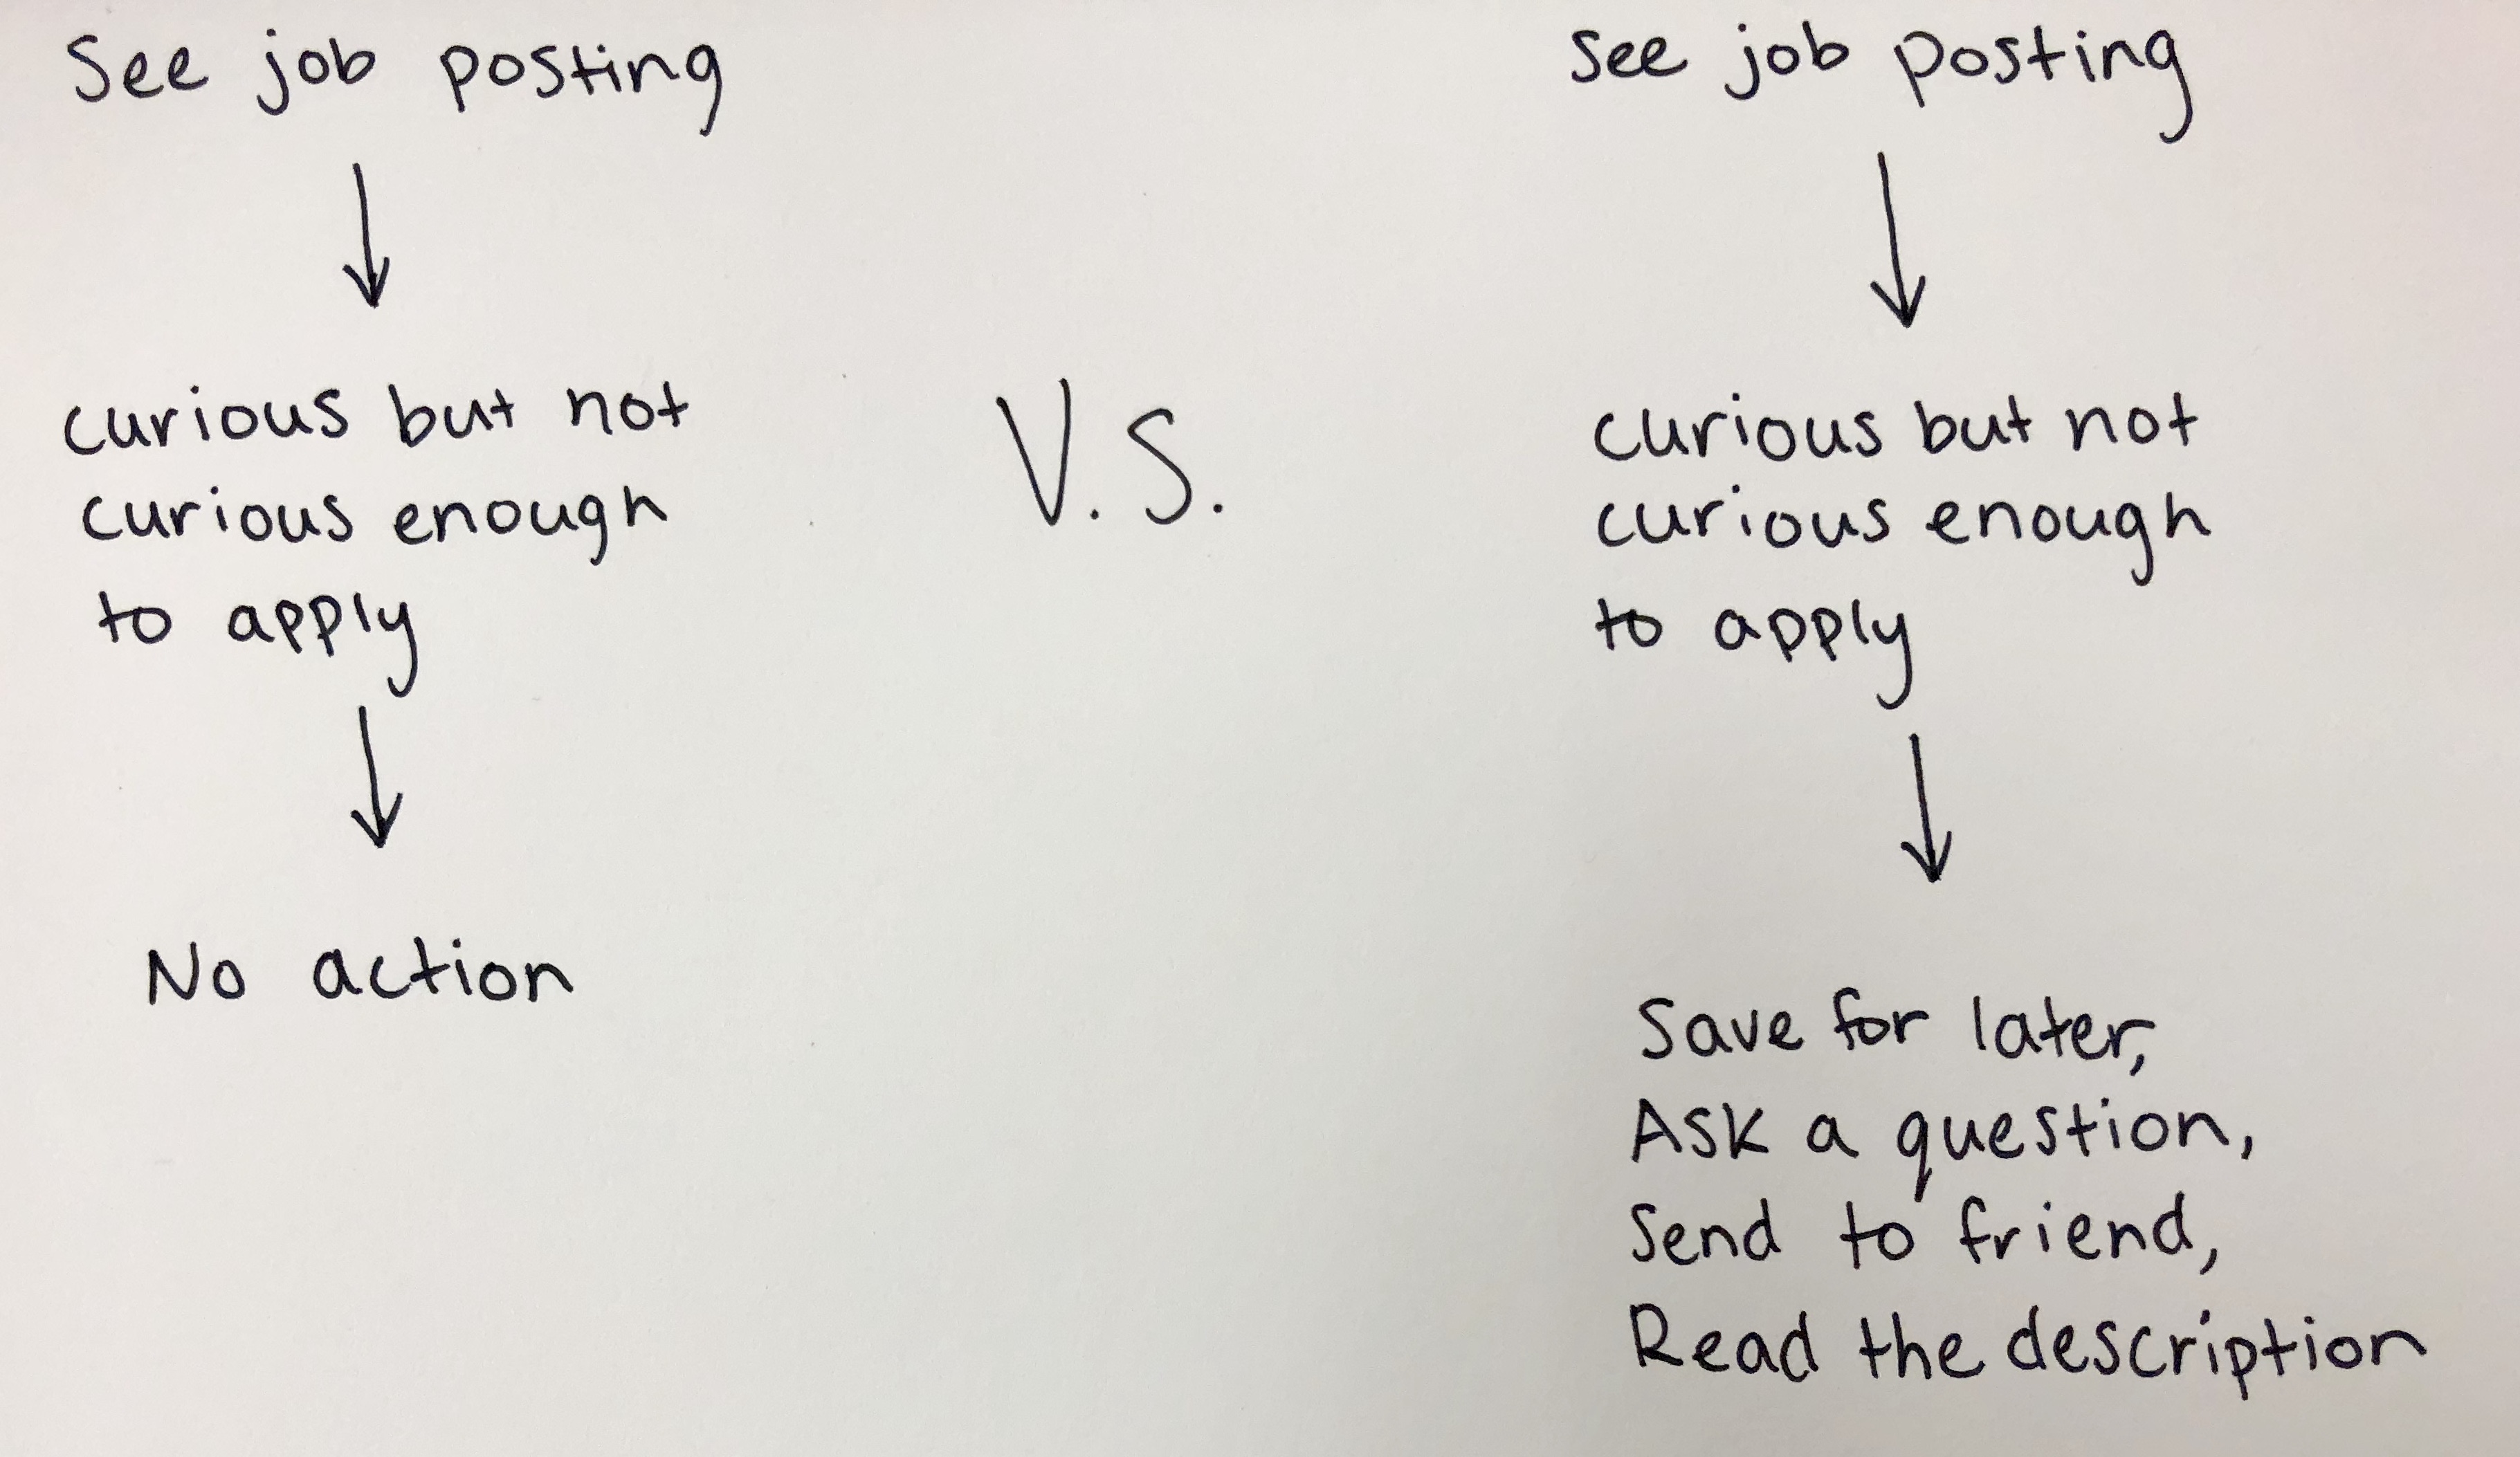 See job posting
curious but not
curious enough
to apply
No action
V.S.
See job posting
curious but not
curious enough
to apply
Save for later,
Ask a question,
Send to friend,
Read the description